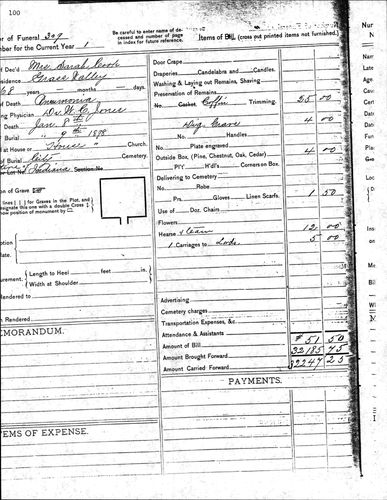 100
r of Funeral 309
mber for the Current Year 1
Be careful to enter name of de-
ceased and number of page
in index for future reference.
Items of Bill, (cross out printed items not furnished.)
Dec'd Mrs. Sarah Cook
esidence Grass Valley
68 years months days.
f Death Pneumonia
ng Physician Dr. W. C. Jones
Death Jan 8th
Burial " 9th 1898
at House or "House" Church.
f Burial City Cemetery.
Lot No. Indiana Section No.
ion of Grave
lines [ ] for Graves in the Plot, and
esignate this one with a double Cross
how position of monument by
urement. Length to Heel feet in.
Width at Shoulder
endered to
n Rendered
EMORANDUM.
EMS OF EXPENSE.
Door Crape
Draperies Candelabra and Candles.
Washing & Laying out Remains, Shaving
Preservation of Remains
No Casket, Coffin Trimming. 25 00
Dig Grave 4 00
No Handles
Plate engraved 4 00
Outside Box (Pine, Chestnut, Oak, Cedar)
P/Y W/s Corners on Box.
Delivering to Cemetery
No. Robe
Prs. Gloves Linen Scarfs. 1 50
Use of Doz. Chairs
Flowers
Hearse & team 12 00
1 Carriages to 5 00
Advertising
Cemetery charges
Transportation Expenses, &c
Attendance & Assistants
Amount of Bill $ 51 50
Amount Brought Forward 32185 75
Amount Carried Forward 32247 25
PAYMENTS.